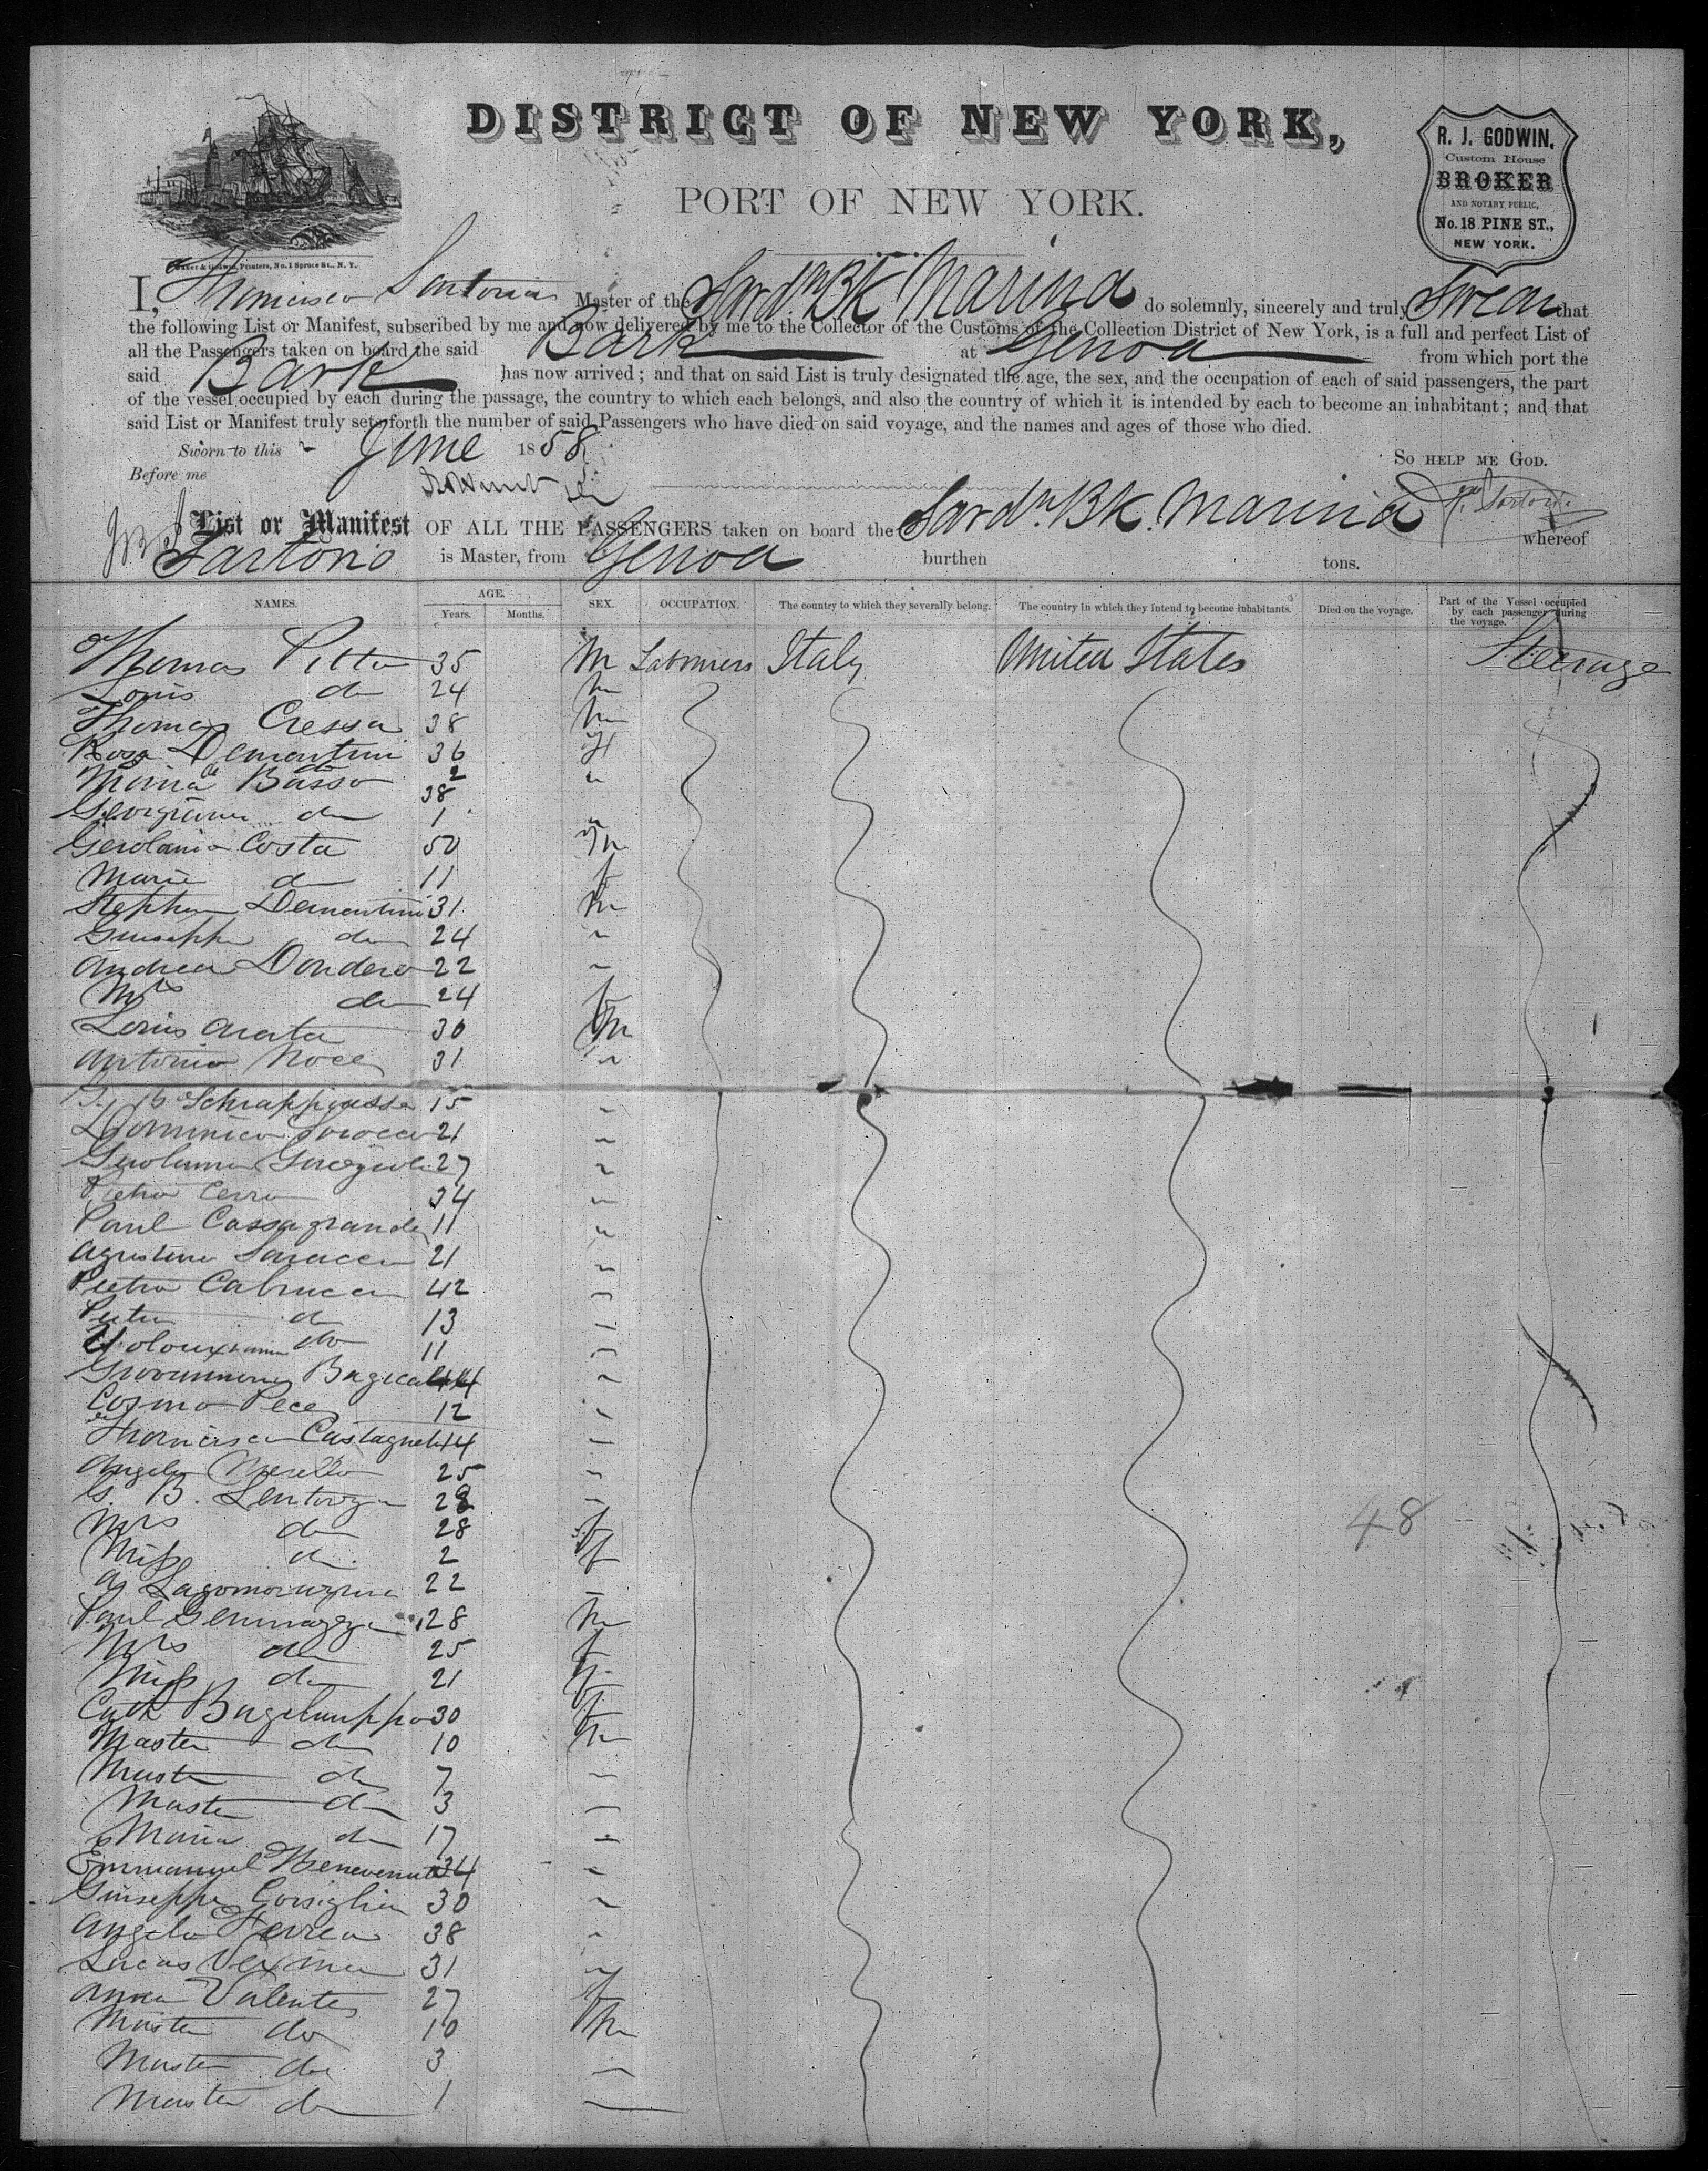 DISTRICT OF NEW YORK,
PORT OF NEW YORK.
R. J. GODWIN,
Custom House
BROKER
AND NOTARY PUBLIC,
No. 18 PINE ST.,
NEW YORK.
Baker & Godwin, Printers, No. 1 Spruce St., N. Y.
I, Master of the Sardn. BK Marina do solemnly, sincerely and truly Swear that
the following List or Manifest, subscribed by me and now delivered by me to the Collector of the Customs of the Collection District of New York, is a full and perfect List of
all the Passengers taken on board the said Bark at Genoa from which port the
said Bark has now arrived; and that on said List is truly designated the age, the sex, and the occupation of each of said passengers, the part
of the vessel occupied by each during the passage, the country to which each belongs, and also the country of which it is intended by each to become an inhabitant; and that
said List or Manifest truly sets forth the number of said Passengers who have died on said voyage, and the names and ages of those who died.
Sworn to this 2 June 1858
So help me God.
Before me
List or Manifest OF ALL THE PASSENGERS taken on board the Sardn. BK. Marina whereof
Sartorio is Master, from Genoa burthen tons.
NAMES. AGE. SEX. OCCUPATION. The country to which they severally belong. The country in which they intend to become inhabitants. Died on the voyage. Part of the Vessel occupied by each passenger during the voyage.
Years. Months.
Thomas 35 M Labourers Italy United States Steerage
Louis do 24 m
Thomas Cressa 38 m
Rosa Demartini 36 F
Maria Basso 38 "
do 2
do 1 "
Costa 50 m
Marie do 11 f
Stephen Demartini 31 m
Giuseppe do 24 "
Andrea Dondero 22 "
Mrs do 24 f
Louis Arata 30 m
Antonio Noce 31 "
15 "
21 "
27 "
Pietro Cerro 34 "
Paul Cassagrande 11 "
21 "
Pietro 42 "
do 13 "
do 11 "
44 "
Cosmo Pece 12 "
14 "
Angelo 25 "
G. B. 28 "
Mrs do 28 f
Miss do 2 f
22
Paul 28 m
Mrs do 25 f
Miss do 21 f
Cath 30 f
Master do 10 m
Master do 7 "
Master do 3 "
Maria do 17 "
Emmanuel Benevenuto 34 "
Giuseppe Corsiglia 30 "
Angelo 38 "
Lucas 31 "
Anna Valente 27 f
Master do 10 m
Master do 3 "
Master do 1 "
48